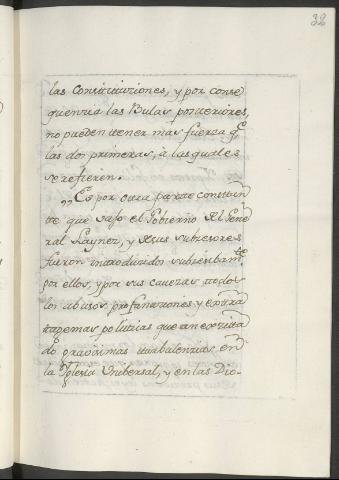 38
las Constituciones, y por conse
quencia las Bulas posteriores,
no pueden tener mas fuerza q.^e
las dos primeras, à las quales
se refieren.
„ Es por otra parte constan
te que vajo el Gobierno del Gene
ral Laynez, y de sus subcesores
fueron introducidos subcesibam.^te
por ellos, y por sus cavezas todos
los abusos, profanaciones y extra
tagemas politicas que an excita
do gravisimas turbulencias en
la Yglesia Unibersal, y en las Dio-